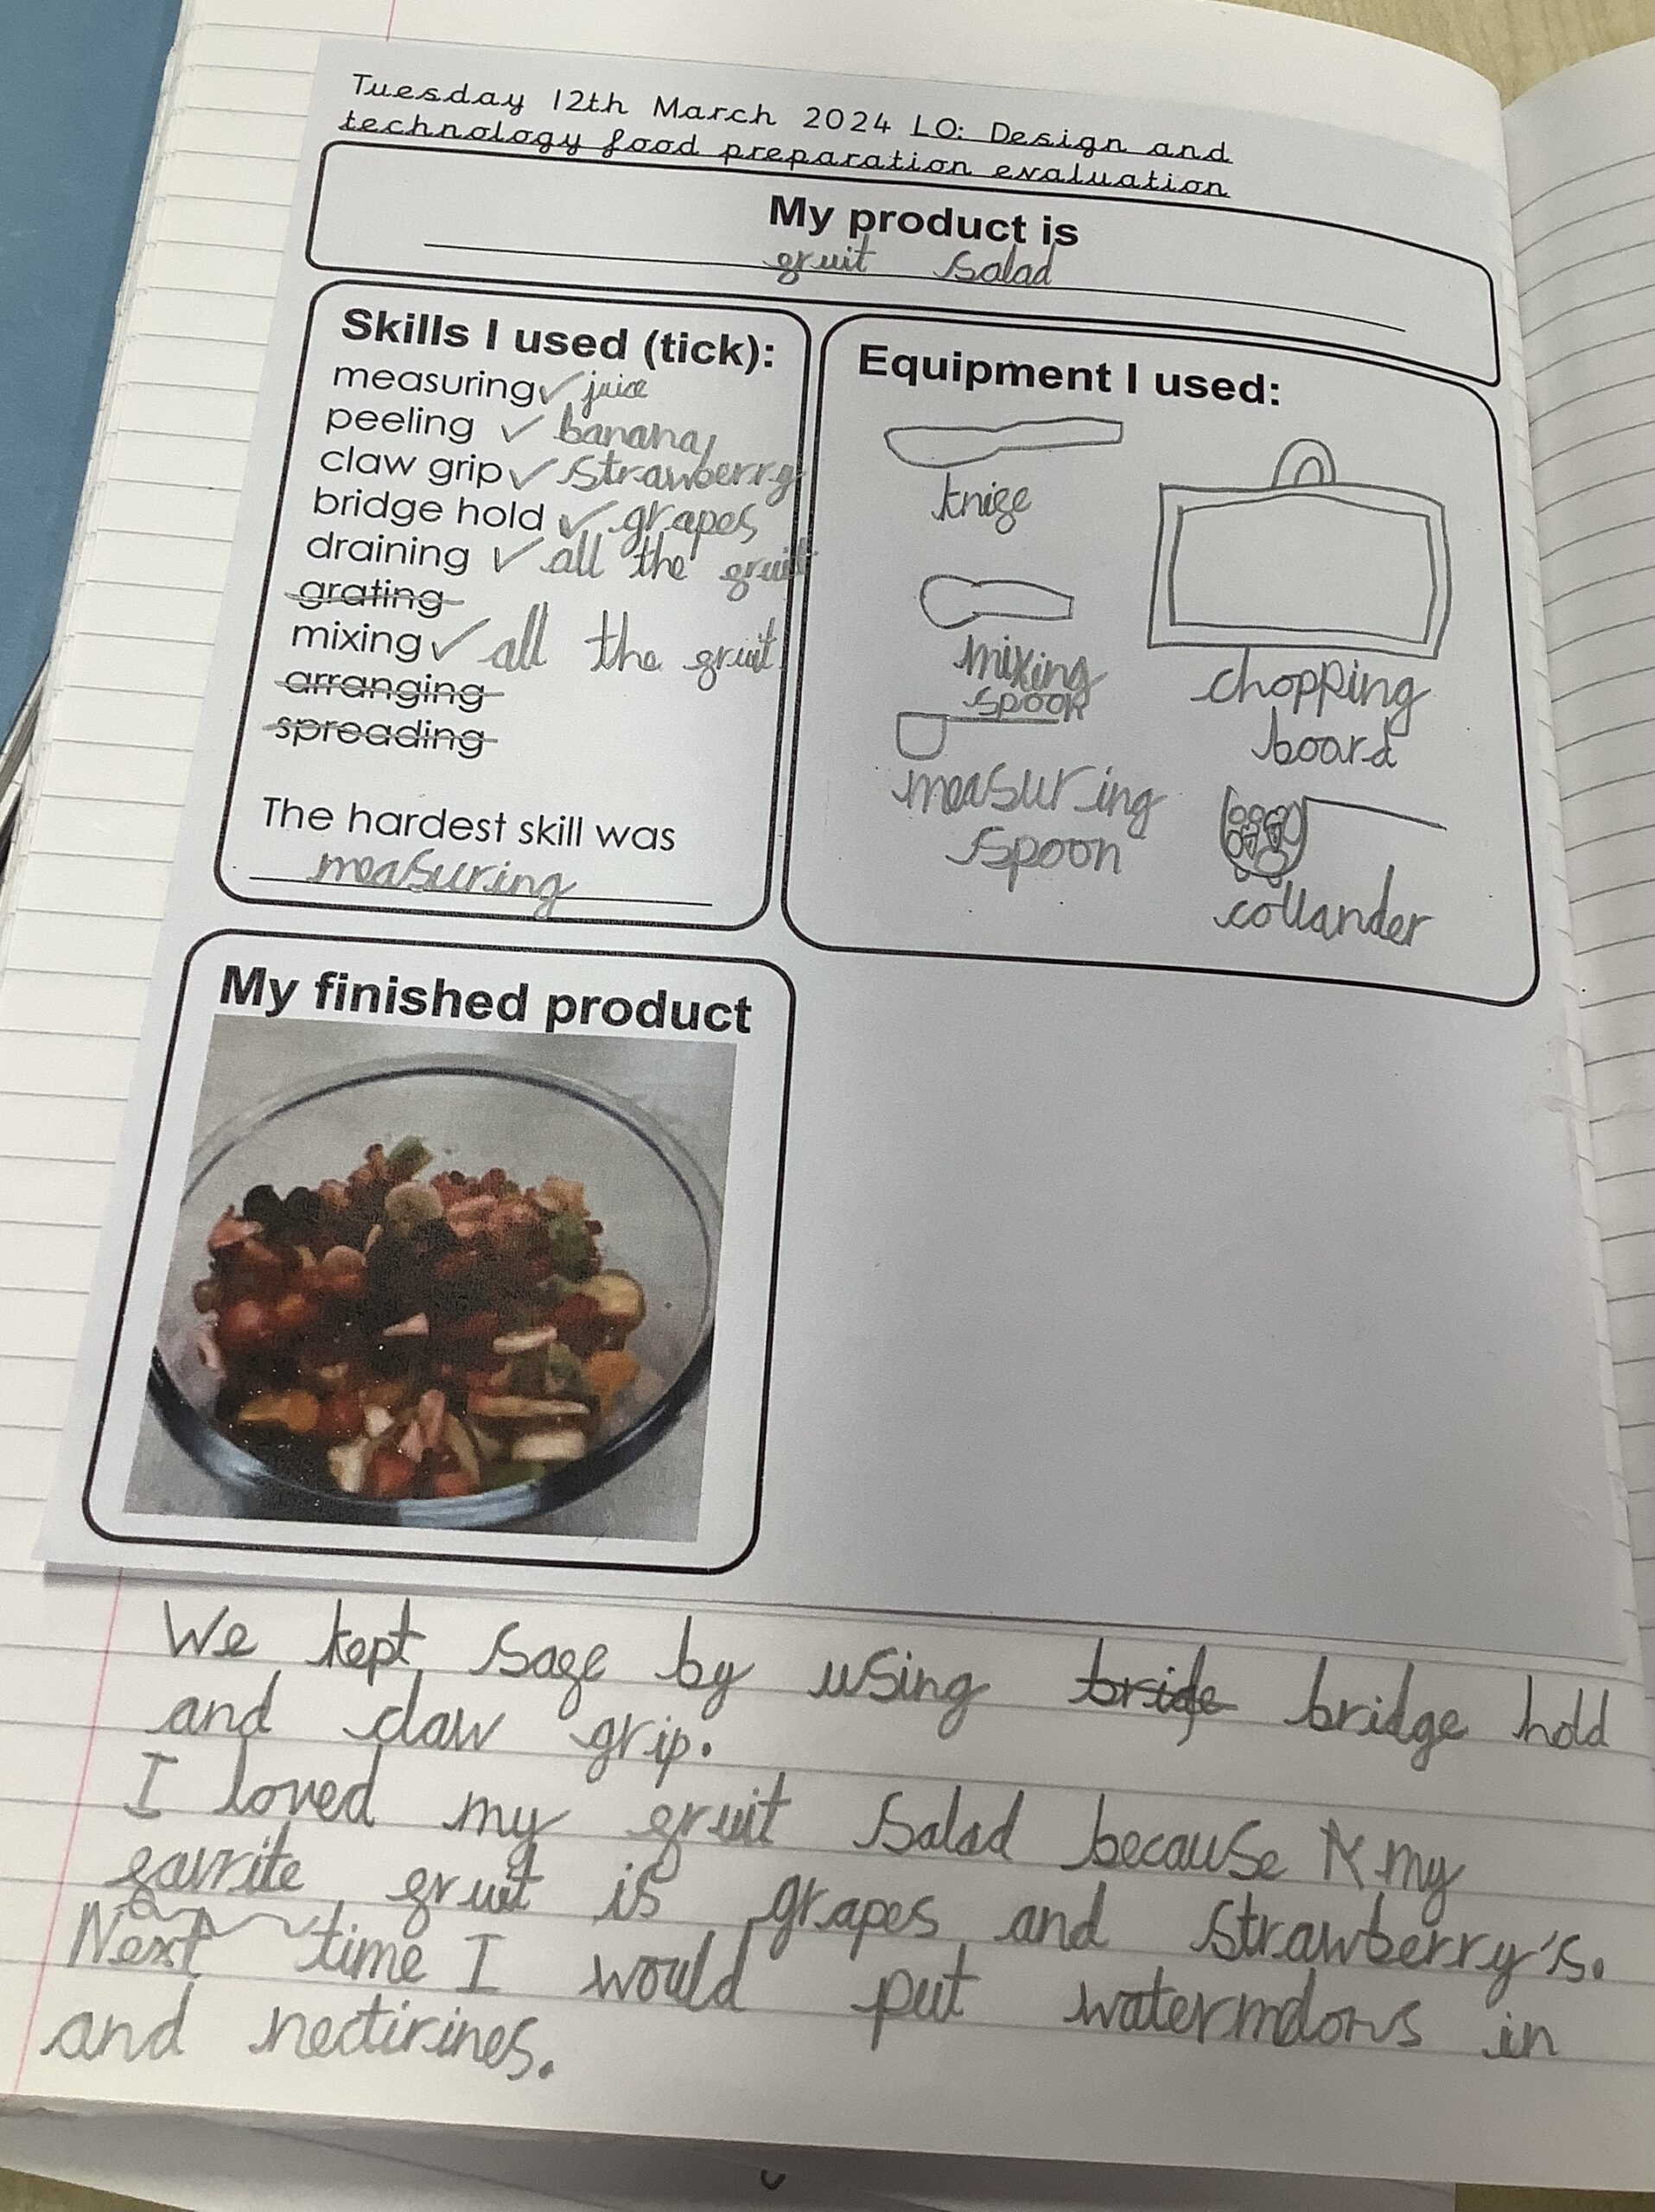 Tuesday 12th March 2024 LO: Design and
technology food preparation evaluation
My product is
fruit salad
Skills I used (tick):
measuring ✓ juice
peeling ✓ banana
claw grip ✓ strawberry
bridge hold ✓ grapes
draining ✓ all the fruit
grating
mixing ✓ all the fruit
arranging
spreading
The hardest skill was
measuring
Equipment I used:
knife
mixing
spoon
chopping
board
measuring
spoon
collander
My finished product
We kept safe by using bridge hold
and claw grip.
I loved my fruit salad because my
favrite fruit is grapes and strawberry's.
Next time I would put watermelons in
and nectirines.